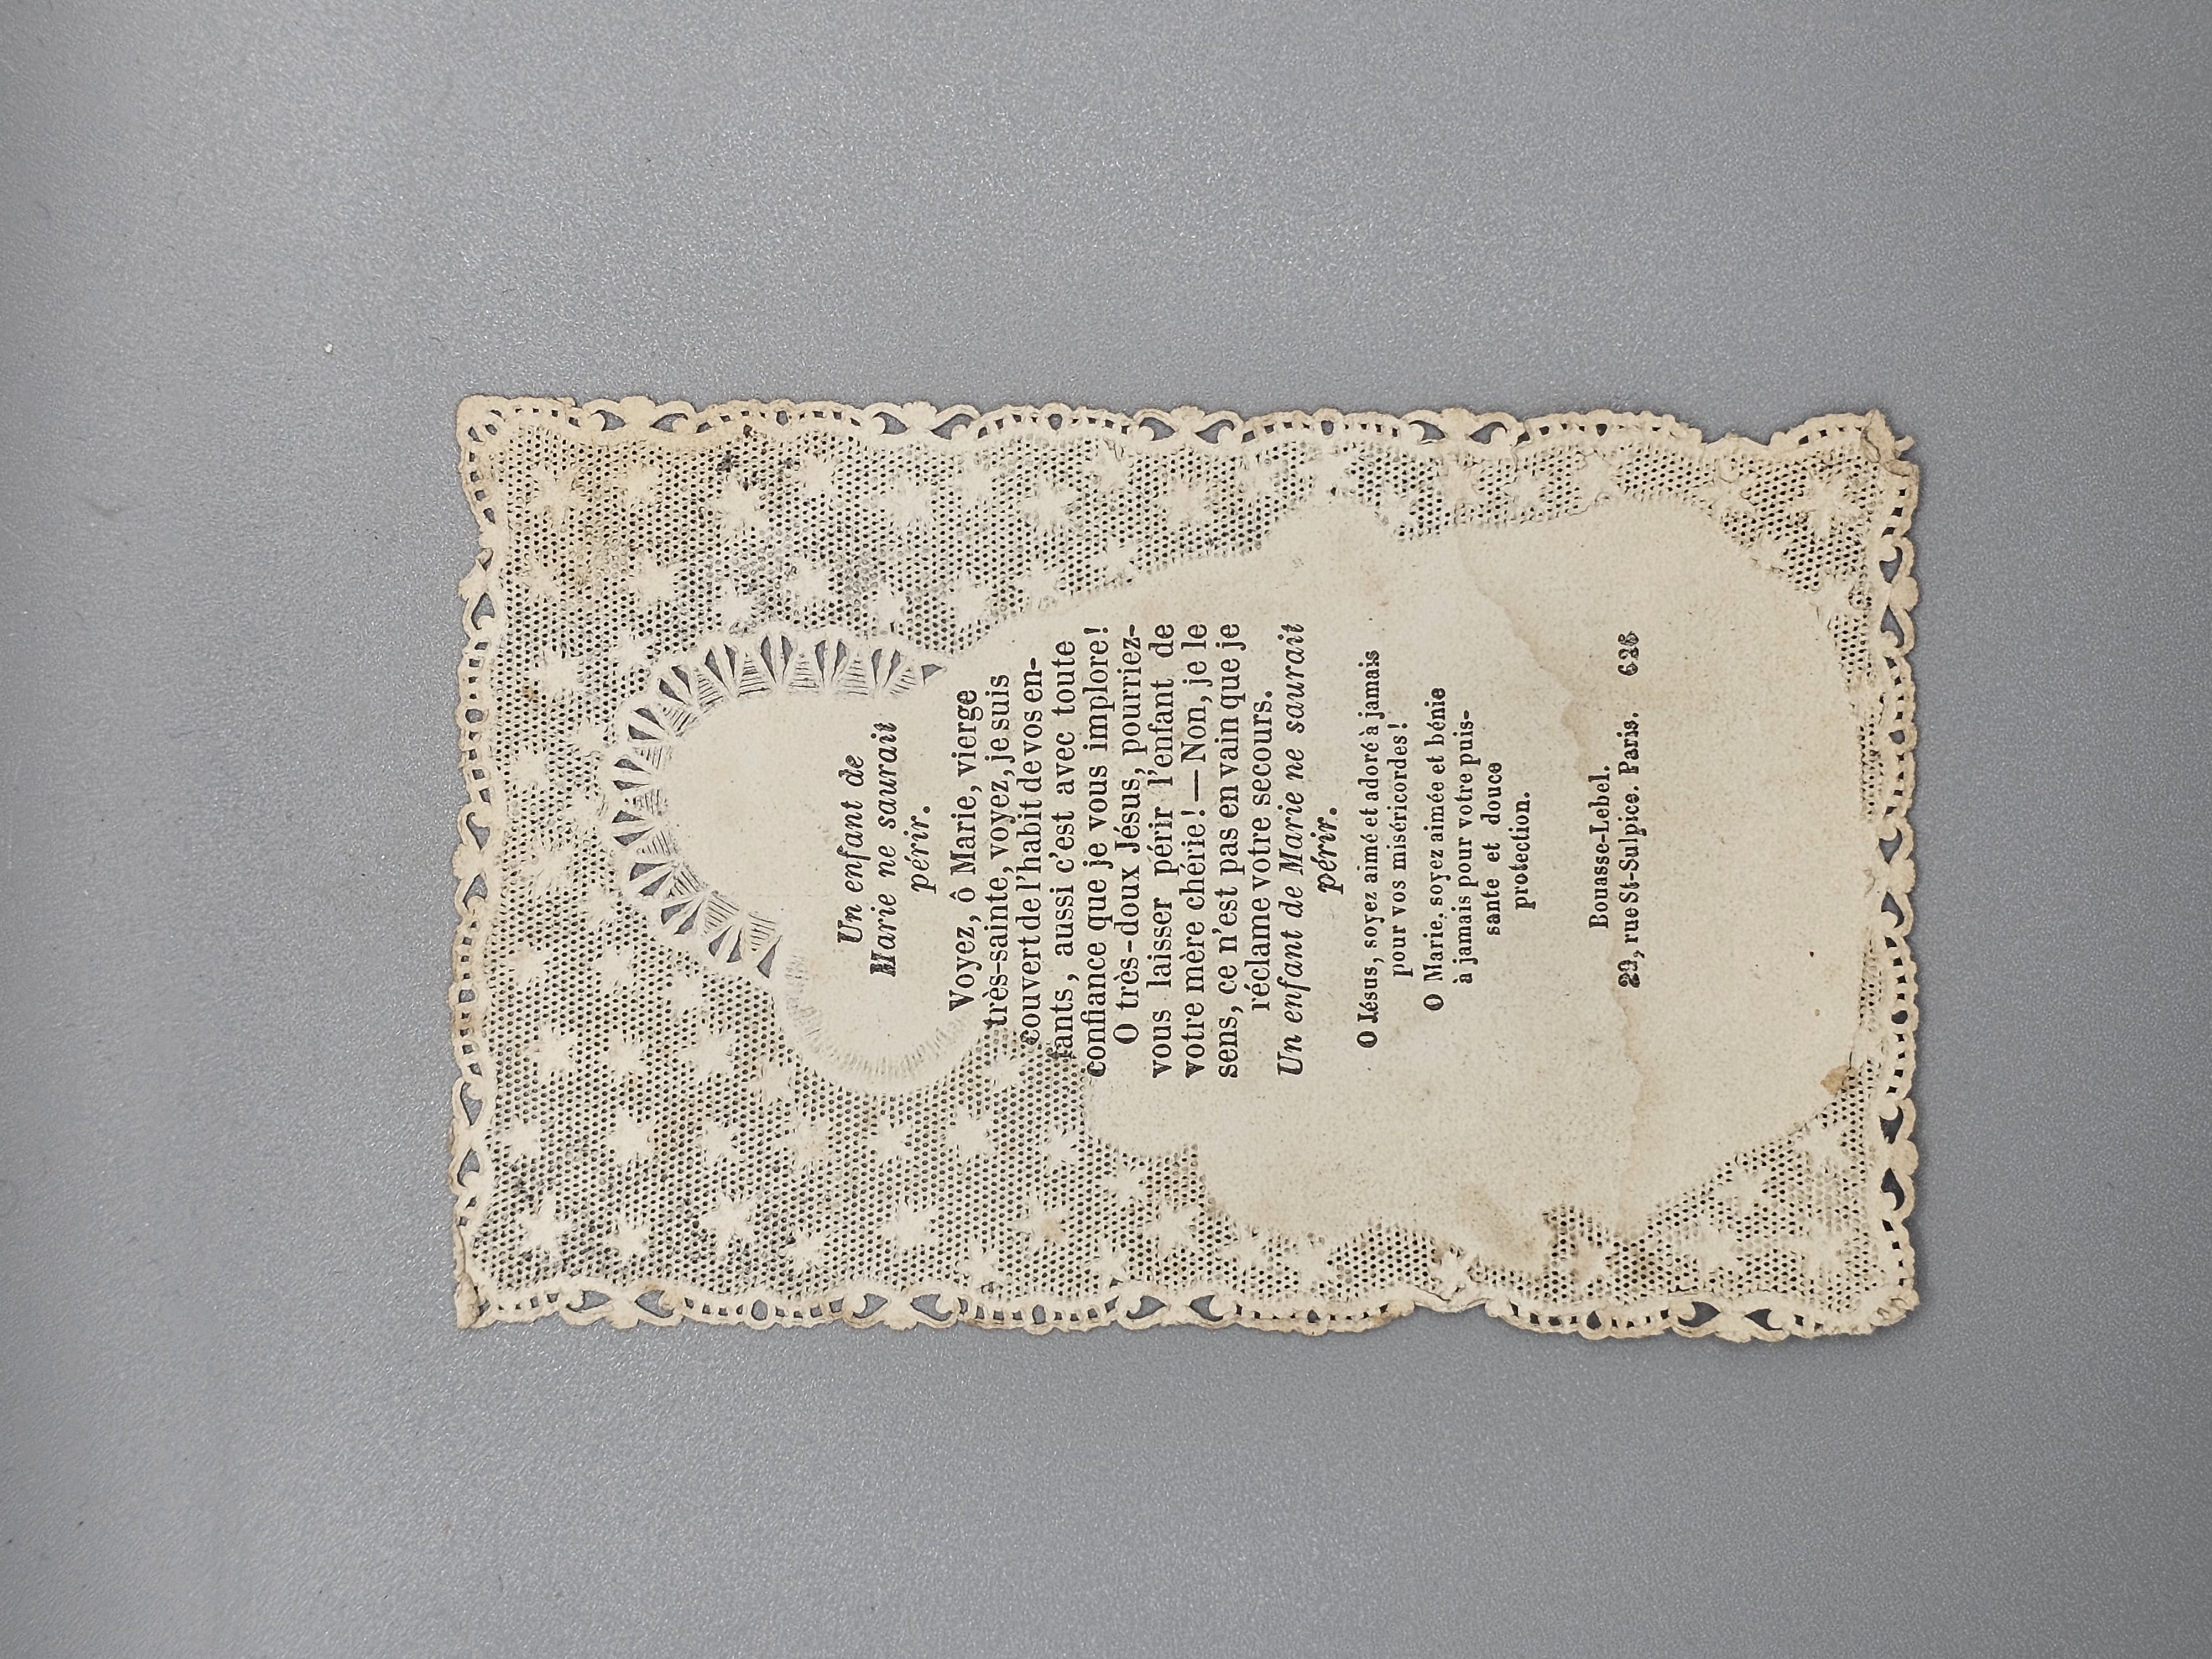 Un enfant de
Marie ne saurait
périr.
Voyez, ô Marie, vierge
très-sainte, voyez, je suis
couvert de l'habit de vos en-
fants, aussi c'est avec toute
confiance que je vous implore!
O très-doux Jésus, pourriez-
vous laisser périr l'enfant de
votre mère chérie! — Non, je le
sens, ce n'est pas en vain que je
réclame votre secours.
Un enfant de Marie ne saurait
périr.
O Jésus, soyez aimé et adoré à jamais
pour vos miséricordes!
O Marie, soyez aimée et bénie
à jamais pour votre puis-
sante et douce
protection.
Bouasse-Lebel.
29, rue St-Sulpice. Paris. 626